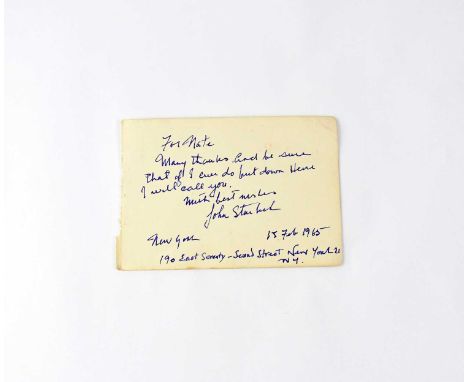 For Nate
Many thanks and be sure
that if I ever do put down Here
I will call you.
With best wishes
John Steinbeck
New York
18 Feb 1965
190 East Seventy-Second Street New York 21
N.Y.